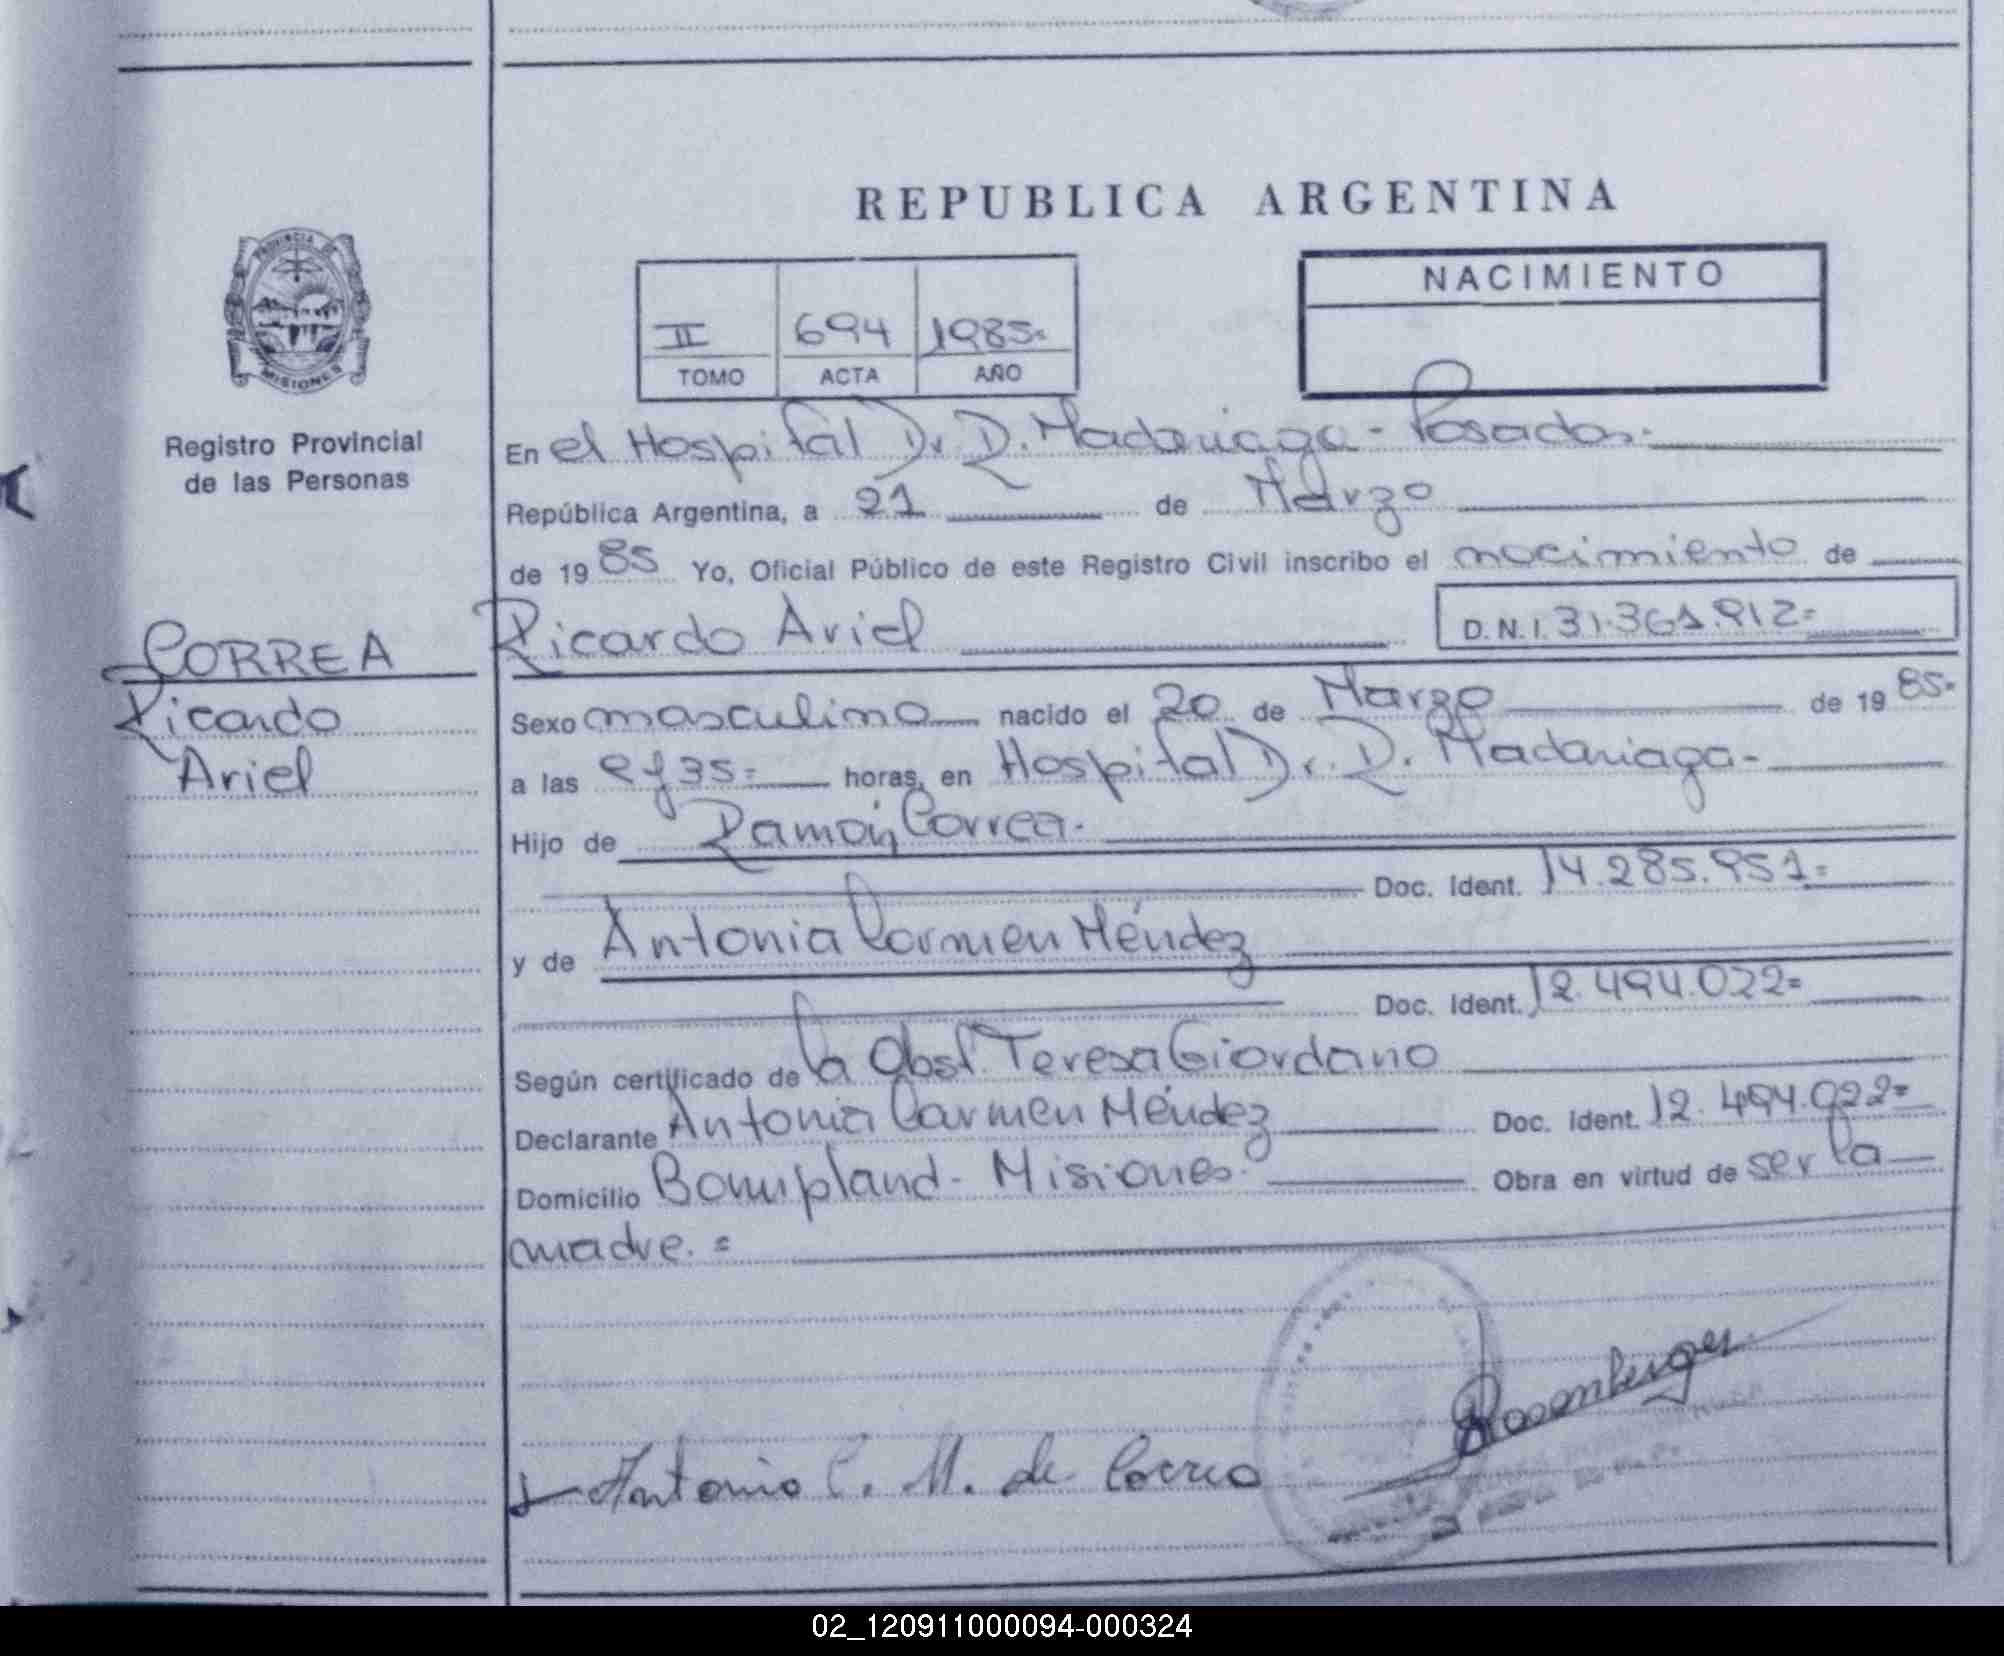 REPUBLICA ARGENTINA
PROVINCIA DE
MISIONES
Registro Provincial
de las Personas
II 694 1985=
TOMO ACTA AÑO
NACIMIENTO
En el Hospital Dr. R. Madariaga - Posadas.
República Argentina, a 21 de Marzo
de 1985 Yo, Oficial Público de este Registro Civil inscribo el nacimiento de
CORREA
Ricardo
Ariel
Ricardo Ariel D.N.I. 31.361.912=
Sexo masculino nacido el 20 de Marzo de 1985=
a las 2y35= horas, en Hospital Dr. R. Madariaga-
Hijo de Ramón Correa.
Doc. Ident. 14.285.951=
y de Antonia Carmen Méndez
Doc. Ident. 12.494.022=
Según certificado de la Obst. Teresa Giordano
Declarante Antonia Carmen Méndez Doc. Ident. 12.494.022=
Domicilio Bonupland - Misiones. Obra en virtud de ser la
madre. =
Antonia C. M. de Correa
Rosenberger
02_120911000094-000324